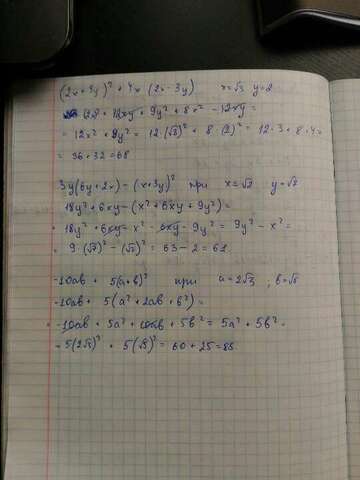 (2x+3y)² + 4x (2x-3y) x=√3 y=2
+ 12xy + 9y² + 8x² - 12xy =
= 12x² + 9y² = 12·(√3)² + 8·(2)² = 12·3 + 8·4 =
= 36+32=68
3y(6y+2x) - (x+3y)² при x=√2 y=√7
18y² + 6xy - (x² + 6xy + 9y²) =
18y² + 6xy - x² - 6xy - 9y² = 9y² - x² =
= 9·(√7)² - (√2)² = 63 - 2 = 61
-10ab + 5(a+b)² при a=2√3, b=√5
-10ab + 5(a² + 2ab + b²) =
- 10ab + 5a² + 10ab + 5b² = 5a² + 5b² =
= 5(2√3)² + 5(√5)² = 60 + 25 = 85